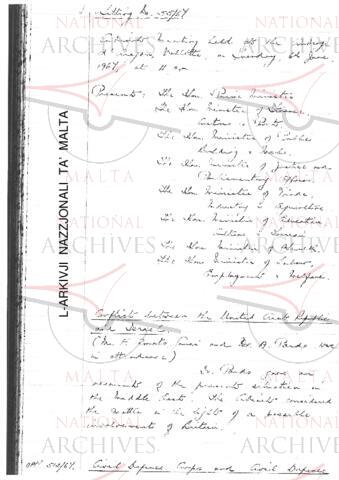 Sitting No. 55/67
Cabinet Meeting held at the Auberge
d'Aragon, Valletta, on Tuesday, 6th June,
1967, at 11 a.m.
Present: The Hon. Prime Minister
The Hon. Minister of Finance,
Customs & Ports
The Hon. Minister of Public
Building & Works
The Hon. Minister of Justice and
Parliamentary Affairs
The Hon. Minister of Trade,
Industry & Agriculture
The Hon. Minister of Education,
Culture & Tourism
The Hon. Minister of Health
The Hon. Minister of Labour,
Employment & Welfare.
Conflict between the United Arab Republic
and Israel
(Mr. F. Amato Gauci and Dr. A. Pardo were
in attendance)
Dr. Pardo gave an
assessment of the present situation in
the Middle East. The Cabinet considered
the matter in the light of a possible
involvement of Britain.
510/67. Civil Defence Corps and Civil Defence
L-ARKIVJI NAZZJONALI TA' MALTA
NATIONAL
ARCHIVES
MALTA
NATIONAL
ARCHIVES
MALTA
NATIONAL
ARCHIVES
MALTA
NATIONAL
ARCHIVES